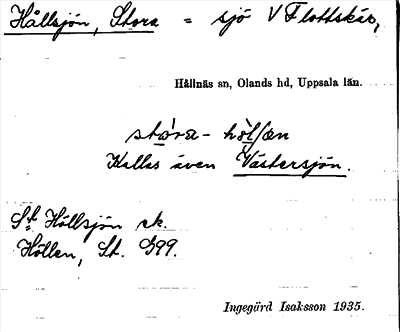 Hållsjön, Stora = sjö V Flottskär,
Hållnäs sn, Olands hd, Uppsala län.
stóra- hòlʃøn
Kallas även Västersjön.
St Hållsjön ek.
Hållen, St. G99.
Ingegärd Isaksson 1935.